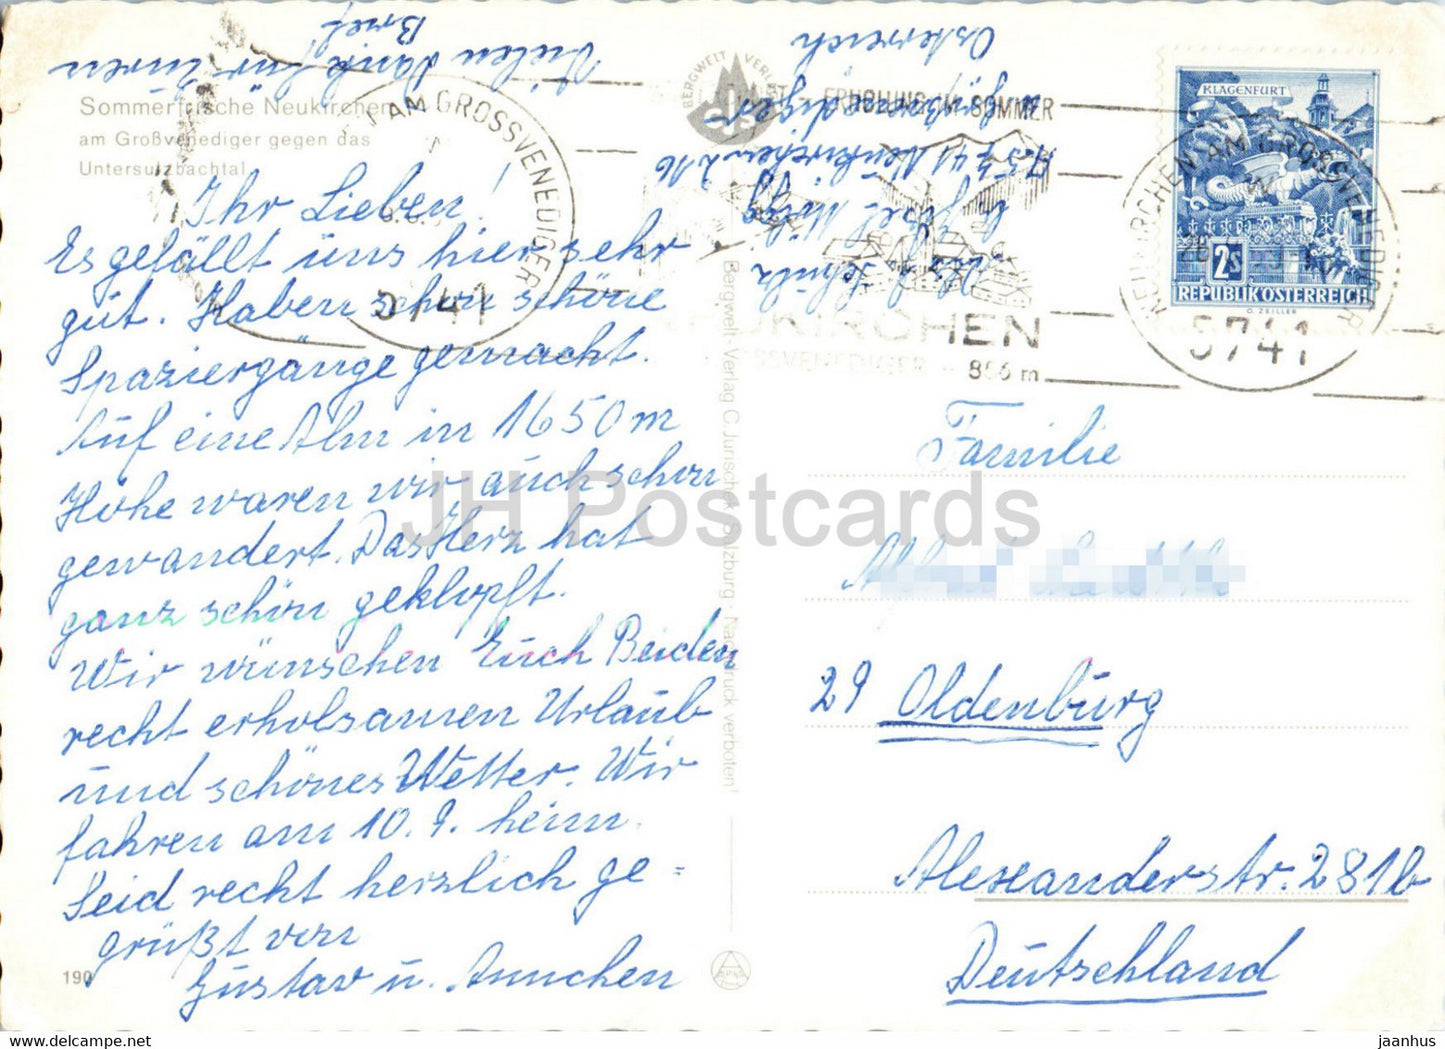 Vielen Dank für Euren
Brief
Sommerfrische Neukirchen
am Großvenediger gegen das
Untersulzbachtal
Ihr Lieben!
Es gefällt uns hier sehr
gut. Haben schon schöne
Spaziergänge gemacht.
Auf eine Alm in 1650 m
Höhe waren wir auch schon
gewandert. Das Herz hat
ganz schön geklopft.
Wir wünschen Euch Beiden
recht erholsamen Urlaub
und schönes Wetter. Wir
fahren am 10. 9. heim.
Seid recht herzlich ge=
grüßt von
Gustav u. Annchen
190
AM GROSSVENEDIGER
5741
BERGWELT VERLAG
Bergwelt-Verlag C. Jurischek, Salzburg · Nachdruck verboten!
Haus
Schütz
A 5741 Neukirchen 216
a. Großvenediger
Österreich
FRÜHLING IM SOMMER
NEUKIRCHEN
GROSSVENEDIGER
856 m
KLAGENFURT
2S
REPUBLIK ÖSTERREICH
O. ZEILLER
NEUKIRCHEN AM GROSSVENEDIGER
5741
Familie
29 Oldenburg
Alexanderstr. 281b
Deutschland
JH Postcards
jaanhus